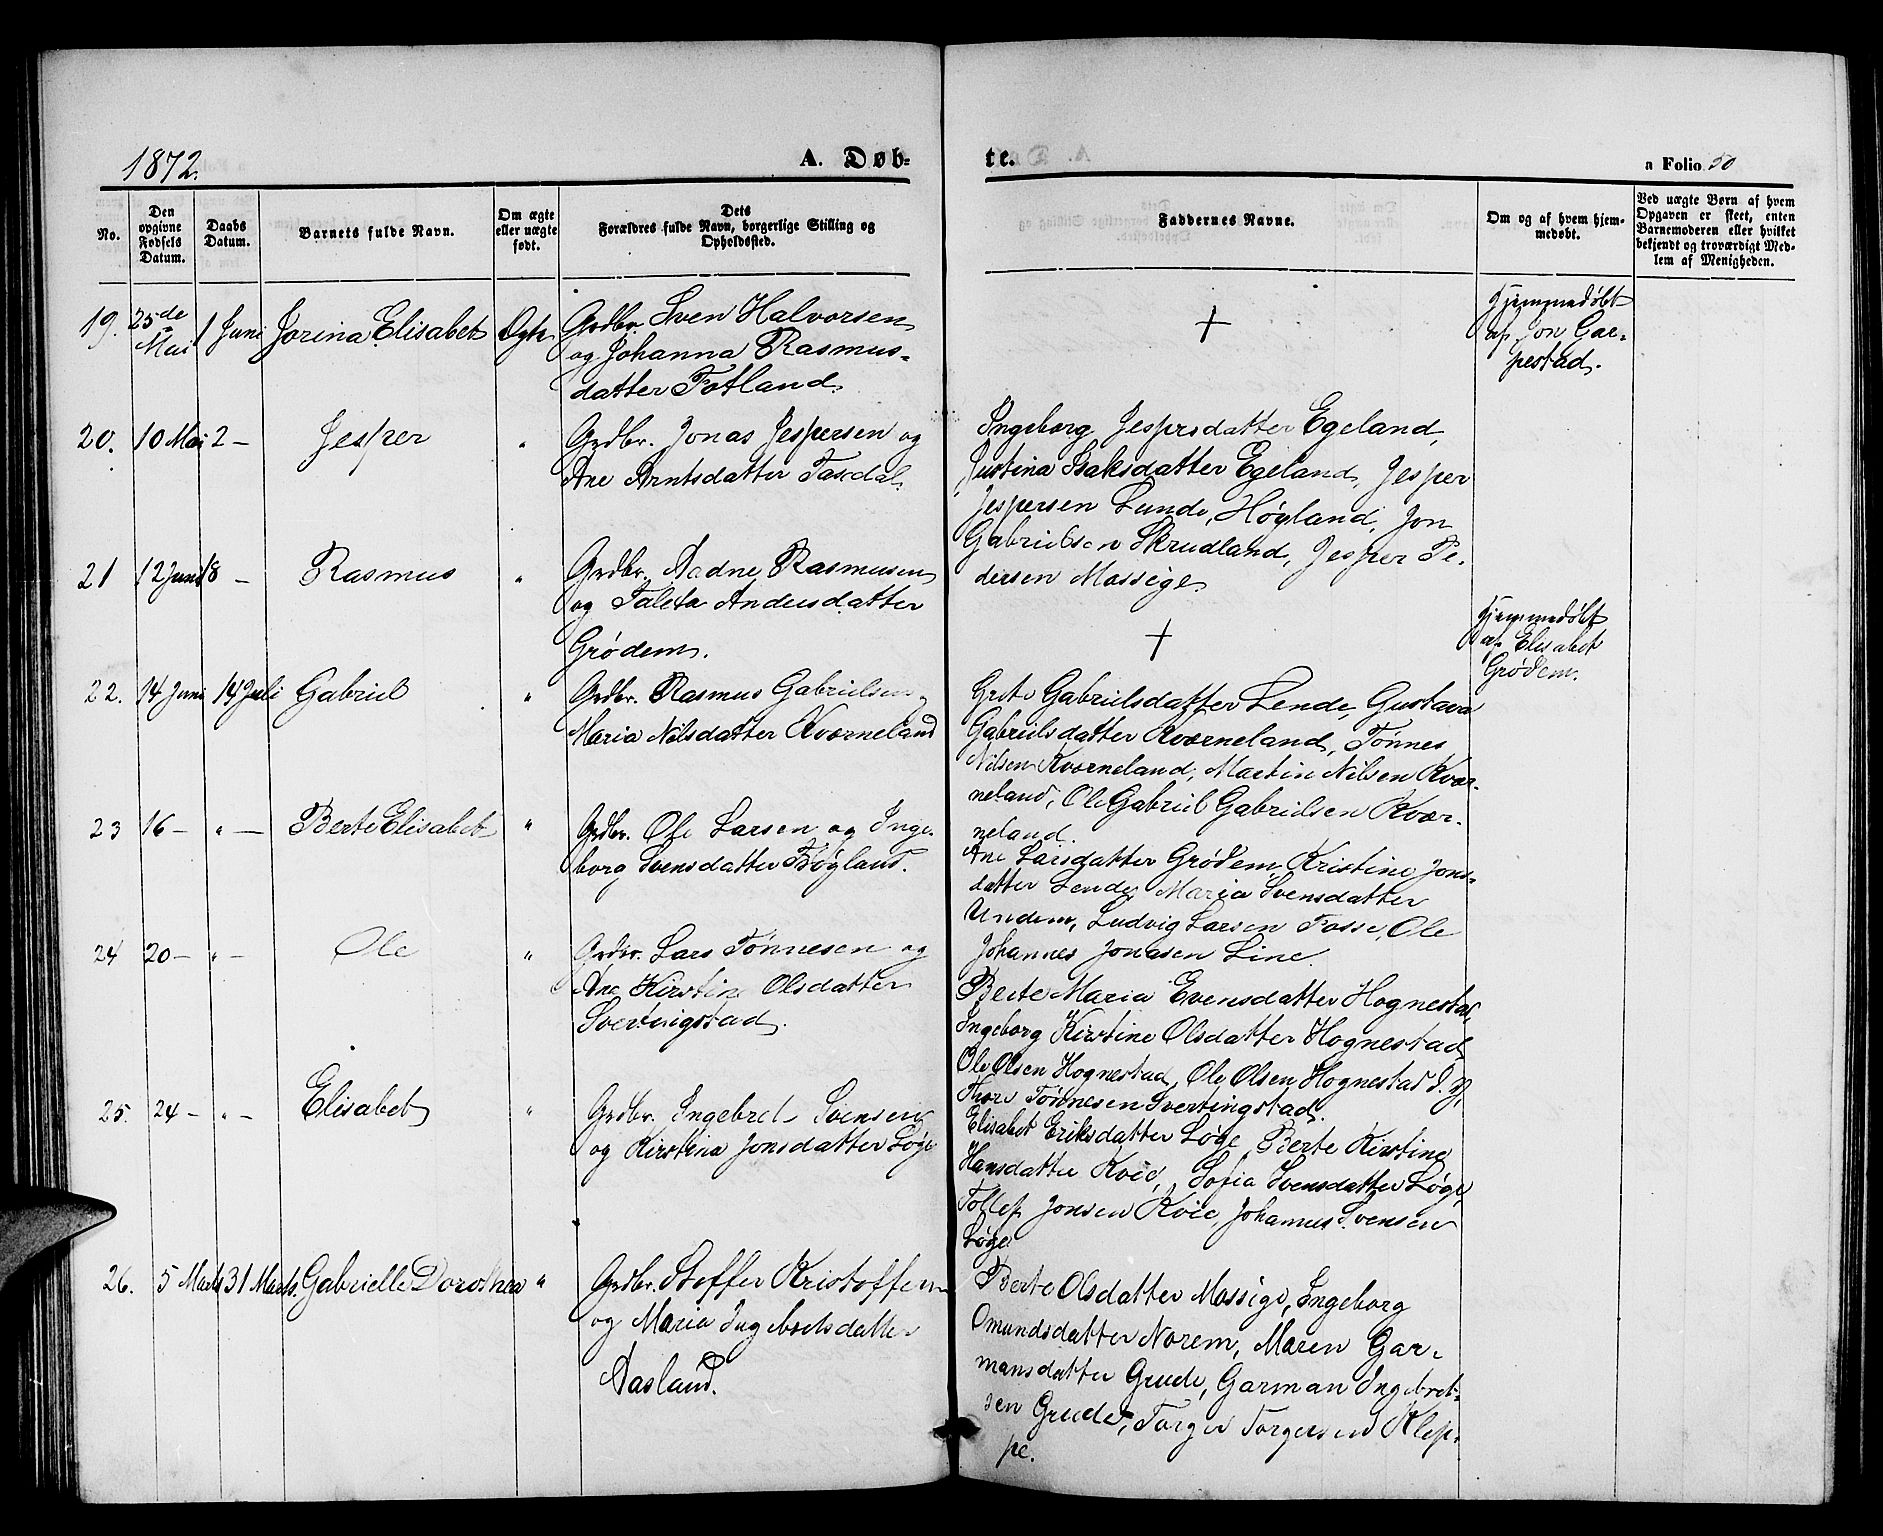 1872.
A. Døb-
te.
a Folio 50
No.
Den opgivne Fødsels Datum.
Daabs Datum.
Barnets fulde Navn.
Om ægte eller uægte født.
Dets Forældres fulde Navn, borgerlige Stilling og Opholdssted.
Faddernes Navne.
Om og af hvem hjemmedøbt.
Ved uægte Børn af hvem Opgaven er skeet, enten Barnemoderen eller hvilket bekjendt og troværdigt Medlem af Menigheden.
19. 25de Mai 1 Juni Jorina Elisabet Ægte
Grdbr. Sven Halvorsen
og Johanna Rasmus-
datter Fotland.
+
Hjemmedøbt
af Jon Gar-
pestad.
20. 10 Mai 2 — Jesper "
Grdbr. Jonas Jespersen og
Ane Arntsdatter Taxdal.
Ingeborg Jesprsdatter Egeland,
Justina Isaksdatter Egeland, Jesper
Jespersen Lunde, Høyland, Jon
Gabrielsen Skrudland, Jesper Pe-
dersen Mossige.
21 12 Juni 18 — Rasmus "
Grdbr. Aadne Rasmusen
og Taleta Andersdatter
Grødem.
+
Hjemmedøbt
af Elisabet
Grødem.
22. 14 Juni 14 Juli Gabriel "
Grdbr. Rasmus Gabrielsen og
Maria Nilsdatter Kværneland
Grete Gabrielsdatter Lende, Gustava
Gabrielsdatter Kværneland, Tønnes
Nilsen Kværneland, Martin Nilsen Kvær-
neland, Ole Gabriel Gabrielsen Kvær-
neland.
23 16 — " — Berte Elisabet "
Grdbr. Ole Larsen og Inge-
borg Svensdatter Høyland.
Ane Larsdatter Grødem, Kristine Jons-
datter Lende, Maria Svensdatter
Undem, Ludvig Larsen Fosse, Ole
Johannes Jonasen Line.
24 20 — " — Ole "
Grdbr. Lars Tønnesen og
Ane Kirstine Olsdatter
Svertingstad.
Berte Maria Evensdatter Hognestad,
Ingeborg Kirstine Olsdatter Hognestad
Ole Olsen Hognestad, Ole Olsen Hognestad d. y.
Thore Tønnesen Svertingstad.
25. 24 — " — Elisabet "
Grdbr. Ingebret Svensen
og Kirstina Jonsdatter Løge
Elisabet Eriksdatter Løge, Berte Kirstine
Hansdatter Kvie, Sofia Svensdatter Løge,
Tollef Jonsen Kvie, Johannes Svensen
Løge
26. 5 Marts 31 Marts. Gabrielle Dorothea "
Grdbr. Stoffer Kristoffersen
og Maria Ingebretsdatter
Aasland.
Berte Olsdatter Mossige, Ingeborg
Omundsdatter Norem, Maren Gar-
mansdatter Grude, Garman Ingebret-
sen Grude, Torger Torgersen Klep-
pe.